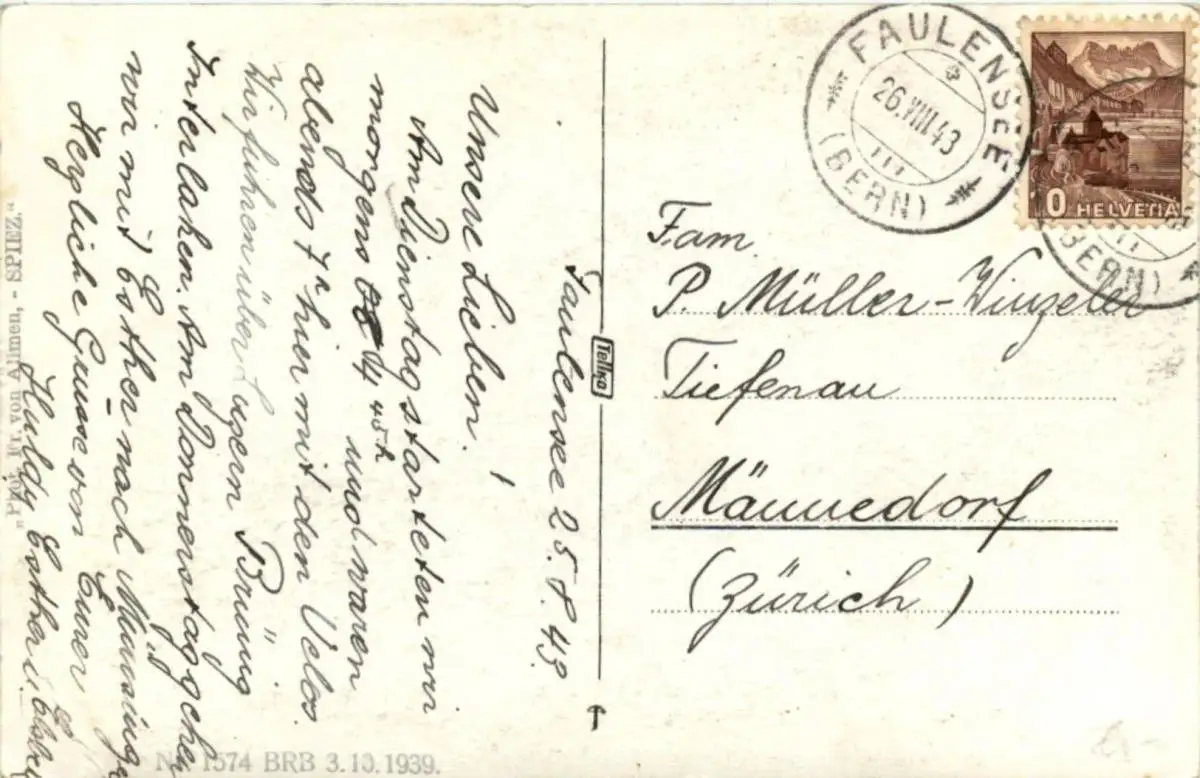 Faulensee 25.8.43.
Unsere Lieben!
Am Dienstag starteten wir
morgens 4 45h und waren
abends 7h hier mit den Velos.
Wir fuhren über Luzern Brünig
Interlaken. Am Donnerstag gehen
wir mit Esther nach
Herzliche Grüsse von Eurer
Huldy Esther u.
Fam.
P. Müller-Winzeler
Tiefenau
Männedorf
(Zürich)
FAULENSEE
26.VIII.43
(BERN)
HELVETIA
(BERN)
Tellko
„Phot. H. von Allmen, - SPIEZ."
No 1574 BRB 3.10.1939.